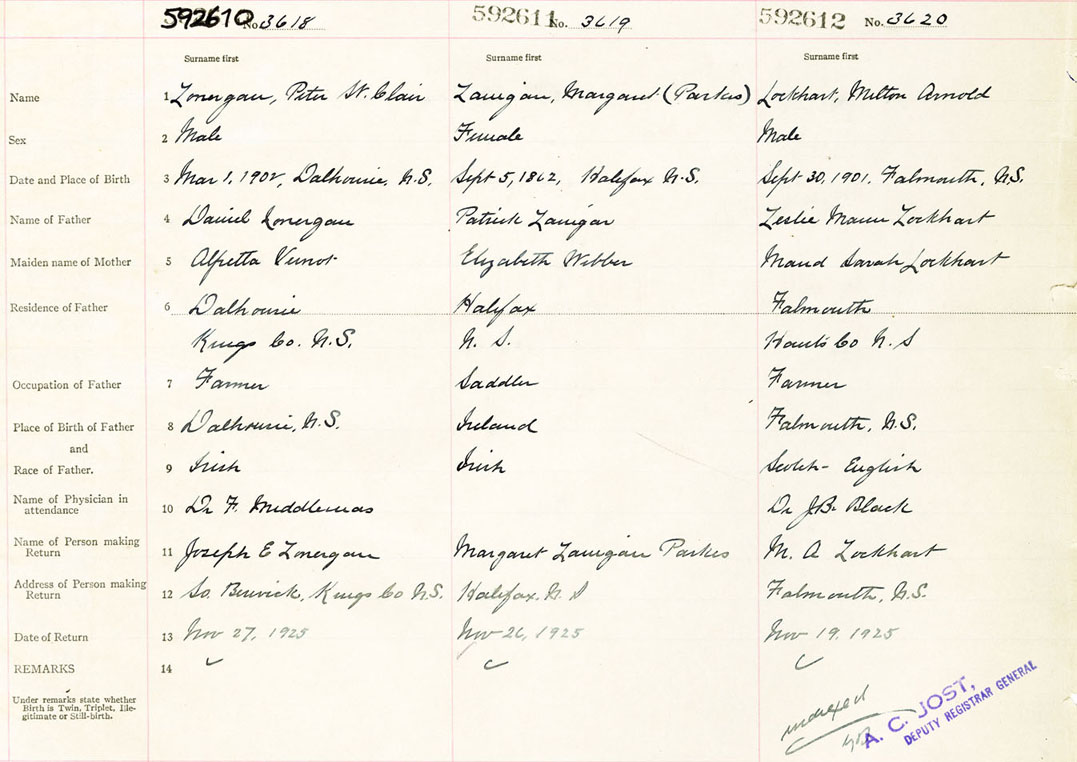 592610 No. 3618 592611 No. 3619 592612 No. 3620
Surname first Surname first Surname first
Name 1 Lonergan, Peter St. Clair Lanigan, Margaret (Parkes) Lockhart, Milton Arnold
Sex 2 Male Female Male
Date and Place of Birth 3 Mar 1, 1902, Dalhousie, N.S. Sept 5, 1862, Halifax N.S. Sept 30, 1901, Falmouth, N.S.
Name of Father 4 Daniel Lonergan Patrick Lanigan Leslie Mann Lockhart
Maiden name of Mother 5 Alfretta Elizabeth Webber Maud Sarah Lockhart
Residence of Father 6 Dalhousie Halifax Falmouth
Kings Co. N.S. N. S. Hants Co N. S
Occupation of Father 7 Farmer Saddler Farmer
Place of Birth of Father 8 Dalhousie, N.S. Ireland Falmouth, N.S.
and
Race of Father. 9 Irish Irish Scotch-English
Name of Physician in
attendance 10 Dr F. Middlemas Dr J.B. Black
Name of Person making
Return 11 Joseph E Lonergan Margaret Lanigan Parkes M. A Lockhart
Address of Person making
Return 12 So. Berwick, Kings Co N.S. Halifax. N. S Falmouth, N.S.
Date of Return 13 Nov 27, 1925 Nov 26, 1925 Nov 19, 1925
REMARKS 14
Under remarks state whether
Birth is Twin, Triplet, Ille-
gitimate or Still-birth.
indexed
A. C. JOST,
DEPUTY REGISTRAR GENERAL